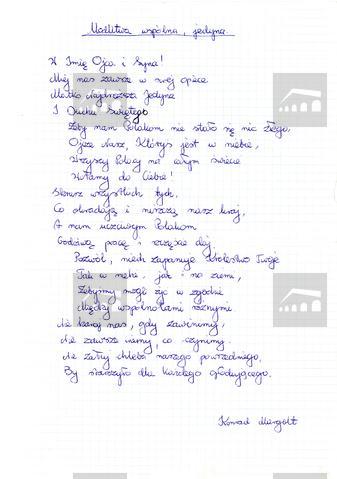 Modlitwa wspólna, jedyna.
W Imię Ojca i Syna!
Miej nas zawsze w swej opiece
Matko Najdroższa Jedyna
I Duchu Świętego
Żeby nam Polakom nie stało się nic złego,
Ojcze Nasz, Któryś jest w niebie,
Wszyscy Polacy na całym świecie
Wołamy do Ciebie!
wszystkich tych,
Co okradają i niszczą nasz kraj,
A nam uczciwym Polakom
Godziwą pracę i szczęście daj.
Pozwól, niech zapanuje Królestwo Twoje
Tak w niebie, jak i na ziemi,
Żebyśmy mogli żyć w zgodzie
Między wspólnotami różnymi
Nie karaj nas, gdy zawinimy,
Nie zawsze wiemy, co czynimy.
Nie żałuj chleba naszego powszedniego,
By starczyło dla każdego głodującego.
Konrad Margolt